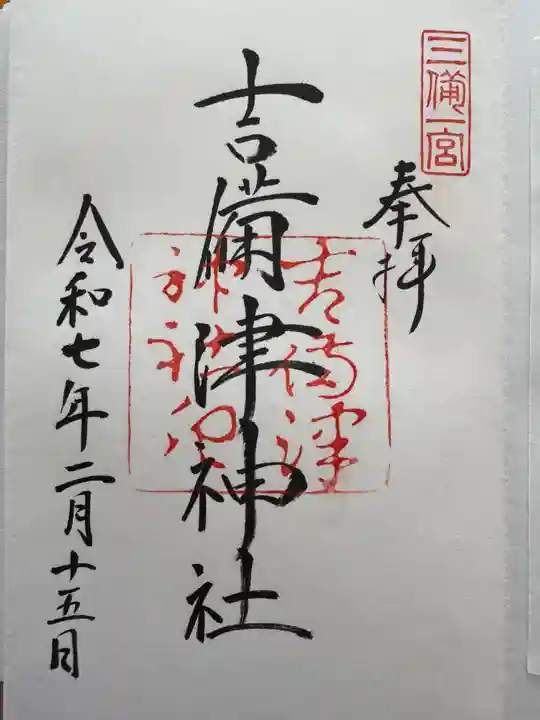 三備一宮
奉拝
吉備津神社
吉備津
令和七年二月十五日